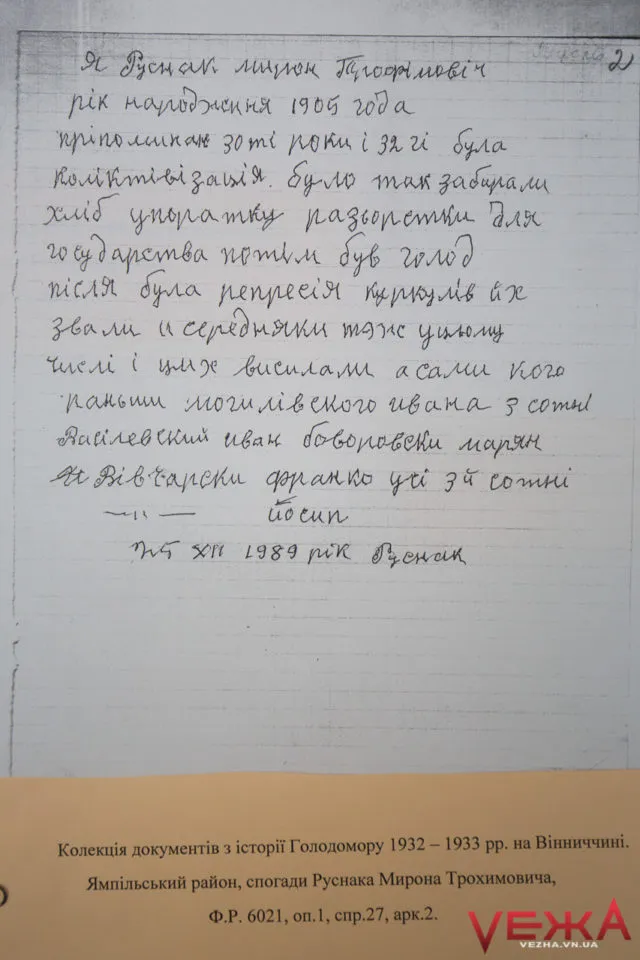 2
Я Руснак мирон Трофімовіч
рік народження 1905 года
пріполинаю 30 ті роки і 32 гі була
коліктівізація. було так забирали
хліб упоратку разворстки для
государства потім був голод
після була репресія куркулів йх
звали и середняки тяж уцьому
числі і цих висилали а сами кого
раньши могилівского ивана з сотні
Васілевский иван боворовски марян
Вівчарски франко усі з й сотні
—"— йосип
25 XII 1989 рік Руснак
Колекція документів з історії Голодомору 1932 – 1933 рр. на Вінниччині.
Ямпільський район, спогади Руснака Мирона Трохимовича,
Ф.Р. 6021, оп.1, спр.27, арк.2.
VЕЖА
VEZHA.VN.UA